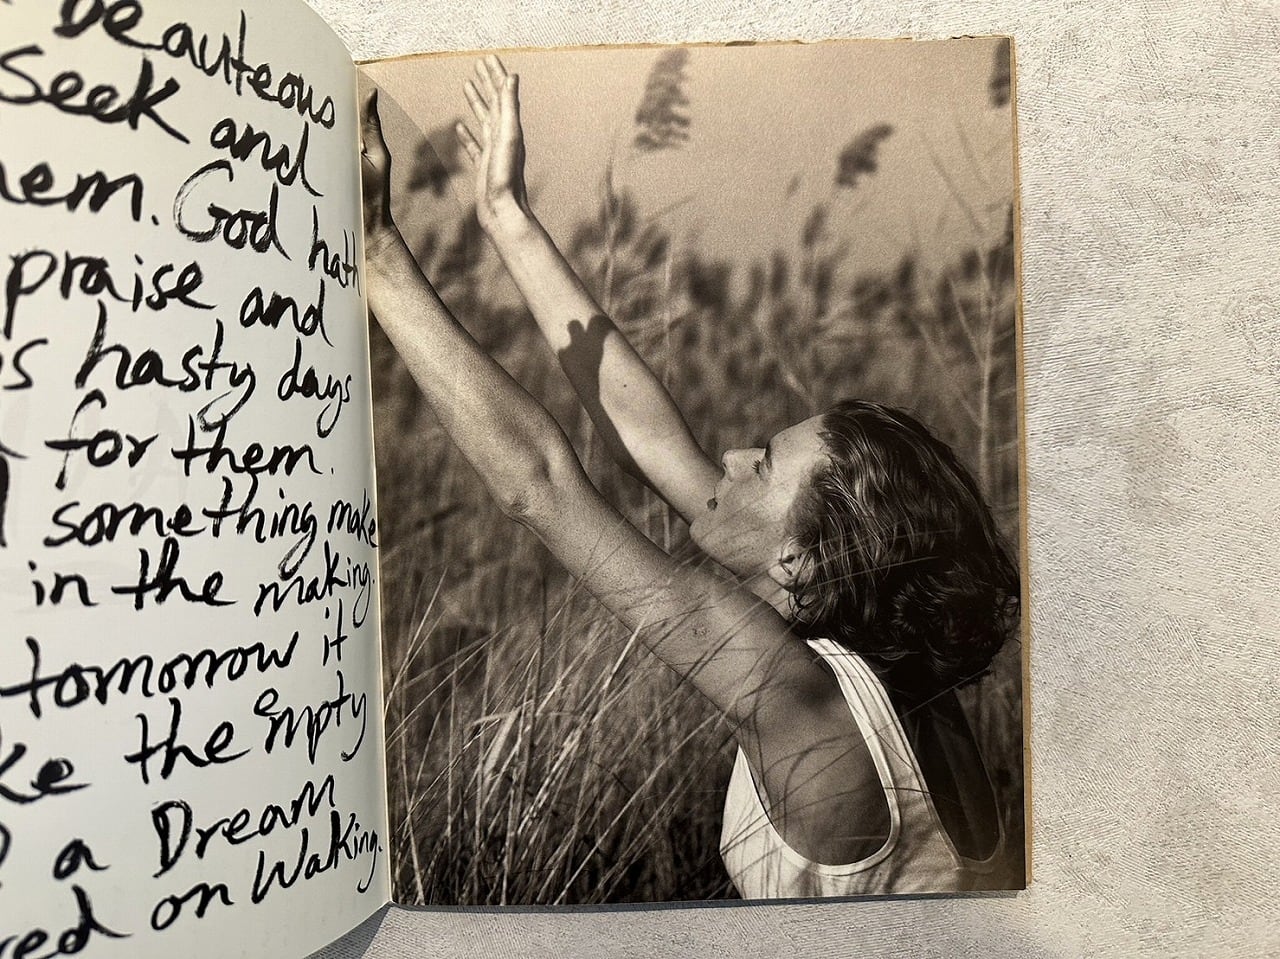 beauteous
Seek and
hem. God hath
praise and
s hasty days
for them.
something make
in the making.
tomorrow it
ke the empty
a Dream
red on Waking.